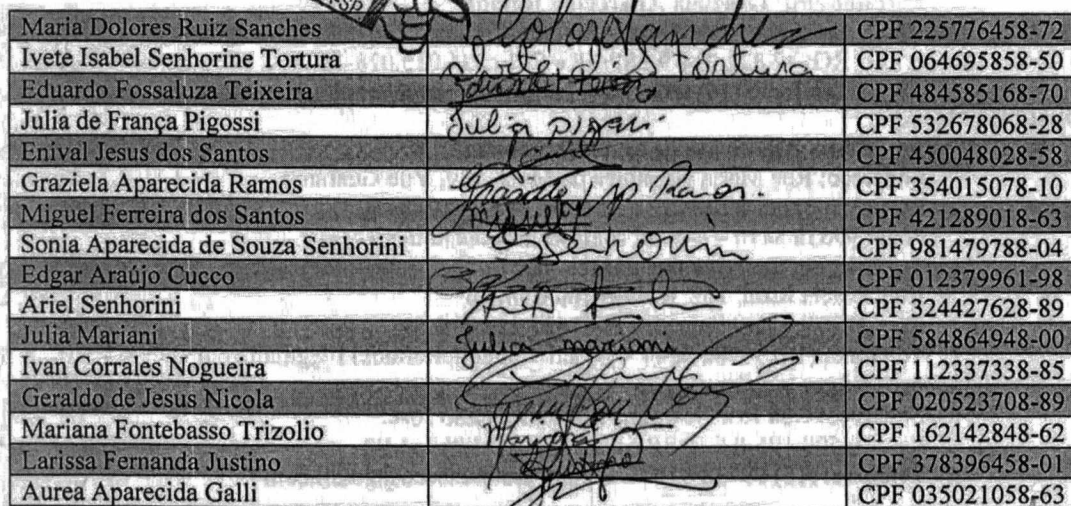 Maria Dolores Ruiz Sanches CPF 225776458-72
Ivete Isabel Senhorine Tortura Tortura CPF 064695858-50
Eduardo Fossaluza Teixeira CPF 484585168-70
Julia de França Pigossi Julia CPF 532678068-28
Enival Jesus dos Santos CPF 450048028-58
Graziela Aparecida Ramos Ramos. CPF 354015078-10
Miguel Ferreira dos Santos Miguel CPF 421289018-63
Sonia Aparecida de Souza Senhorini CPF 981479788-04
Edgar Araújo Cucco CPF 012379961-98
Ariel Senhorini CPF 324427628-89
Julia Mariani Julia mariani CPF 584864948-00
Ivan Corrales Nogueira CPF 112337338-85
Geraldo de Jesus Nicola CPF 020523708-89
Mariana Fontebasso Trizolio CPF 162142848-62
Larissa Fernanda Justino CPF 378396458-01
Aurea Aparecida Galli CPF 035021058-63